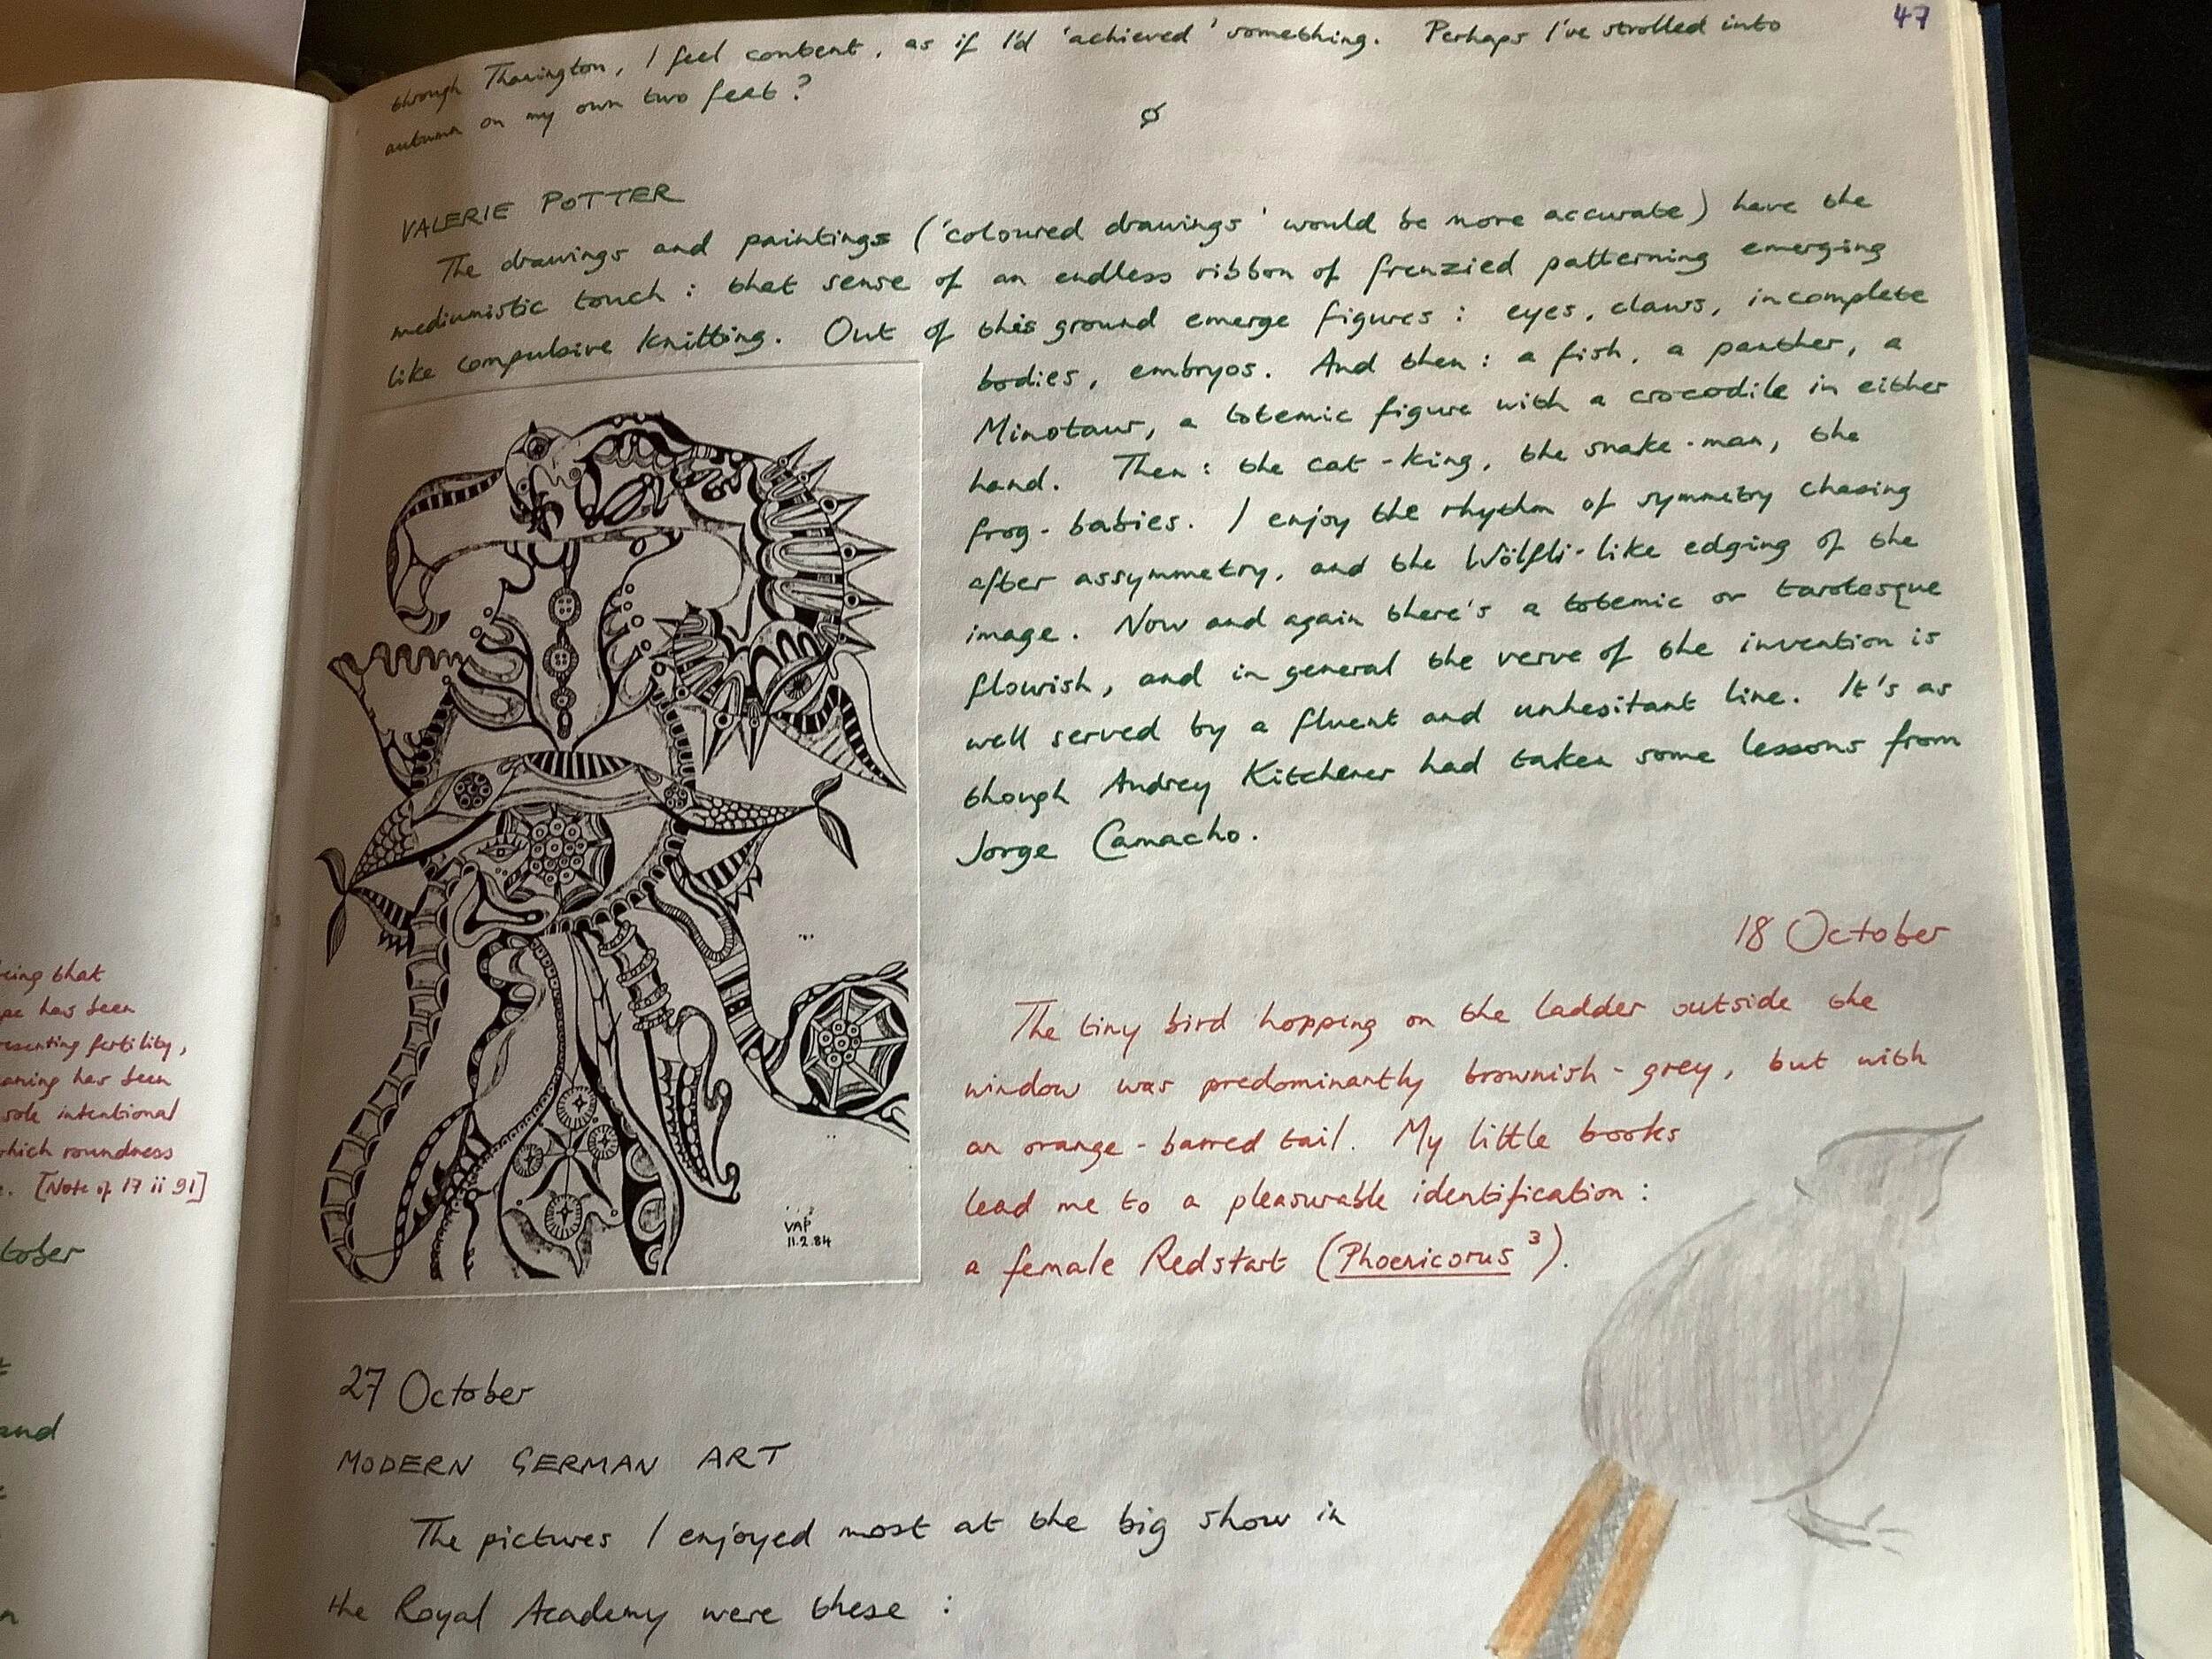 47
through Thanington, I feel content, as if I'd 'achieved' something. Perhaps I've strolled into
autumn on my own two feet?
VALERIE POTTER
The drawings and paintings ('coloured drawings' would be more accurate) have the
mediumistic touch: that sense of an endless ribbon of frenzied patterning emerging
like compulsive knitting. Out of this ground emerge figures: eyes, claws, incomplete
bodies, embryos. And then: a fish, a panther, a
Minotaur, a totemic figure with a crocodile in either
hand. Then: the cat-king, the snake-man, the
frog-babies. I enjoy the rhythm of symmetry chasing
after assymmetry, and the Wölfli-like edging of the
image. Now and again there's a totemic or tarotesque
flourish, and in general the verve of the invention is
well served by a fluent and unhesitant line. It's as
though Audrey Kitchener had taken some lessons from
Jorge Camacho.
VAP
11.2.84
18 October
The tiny bird hopping on the ladder outside the
window was predominantly brownish-grey, but with
an orange-barred tail. My little books
lead me to a pleasurable identification:
a female Redstart (Phoenicorus ³).
27 October
MODERN GERMAN ART
The pictures I enjoyed most at the big show in
the Royal Academy were these:
being that
has been
fertility,
has been
sole intentional
which roundness
[Note of 17 ii 91]
tober
and